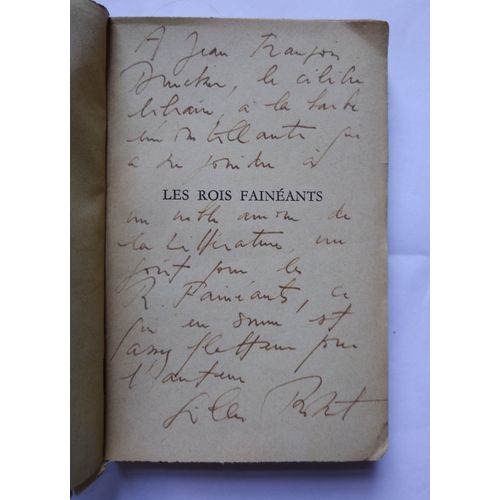 A Jean François
Drucker, le célèbre
libraire, à la barbe
émoustillante qui
a su joindre à
LES ROIS FAINÉANTS
un noble amour de
la Littérature, un
goût pour les
R. Fainéants, ce
qui en somme est
assez flatteur pour
l'auteur
Gilles